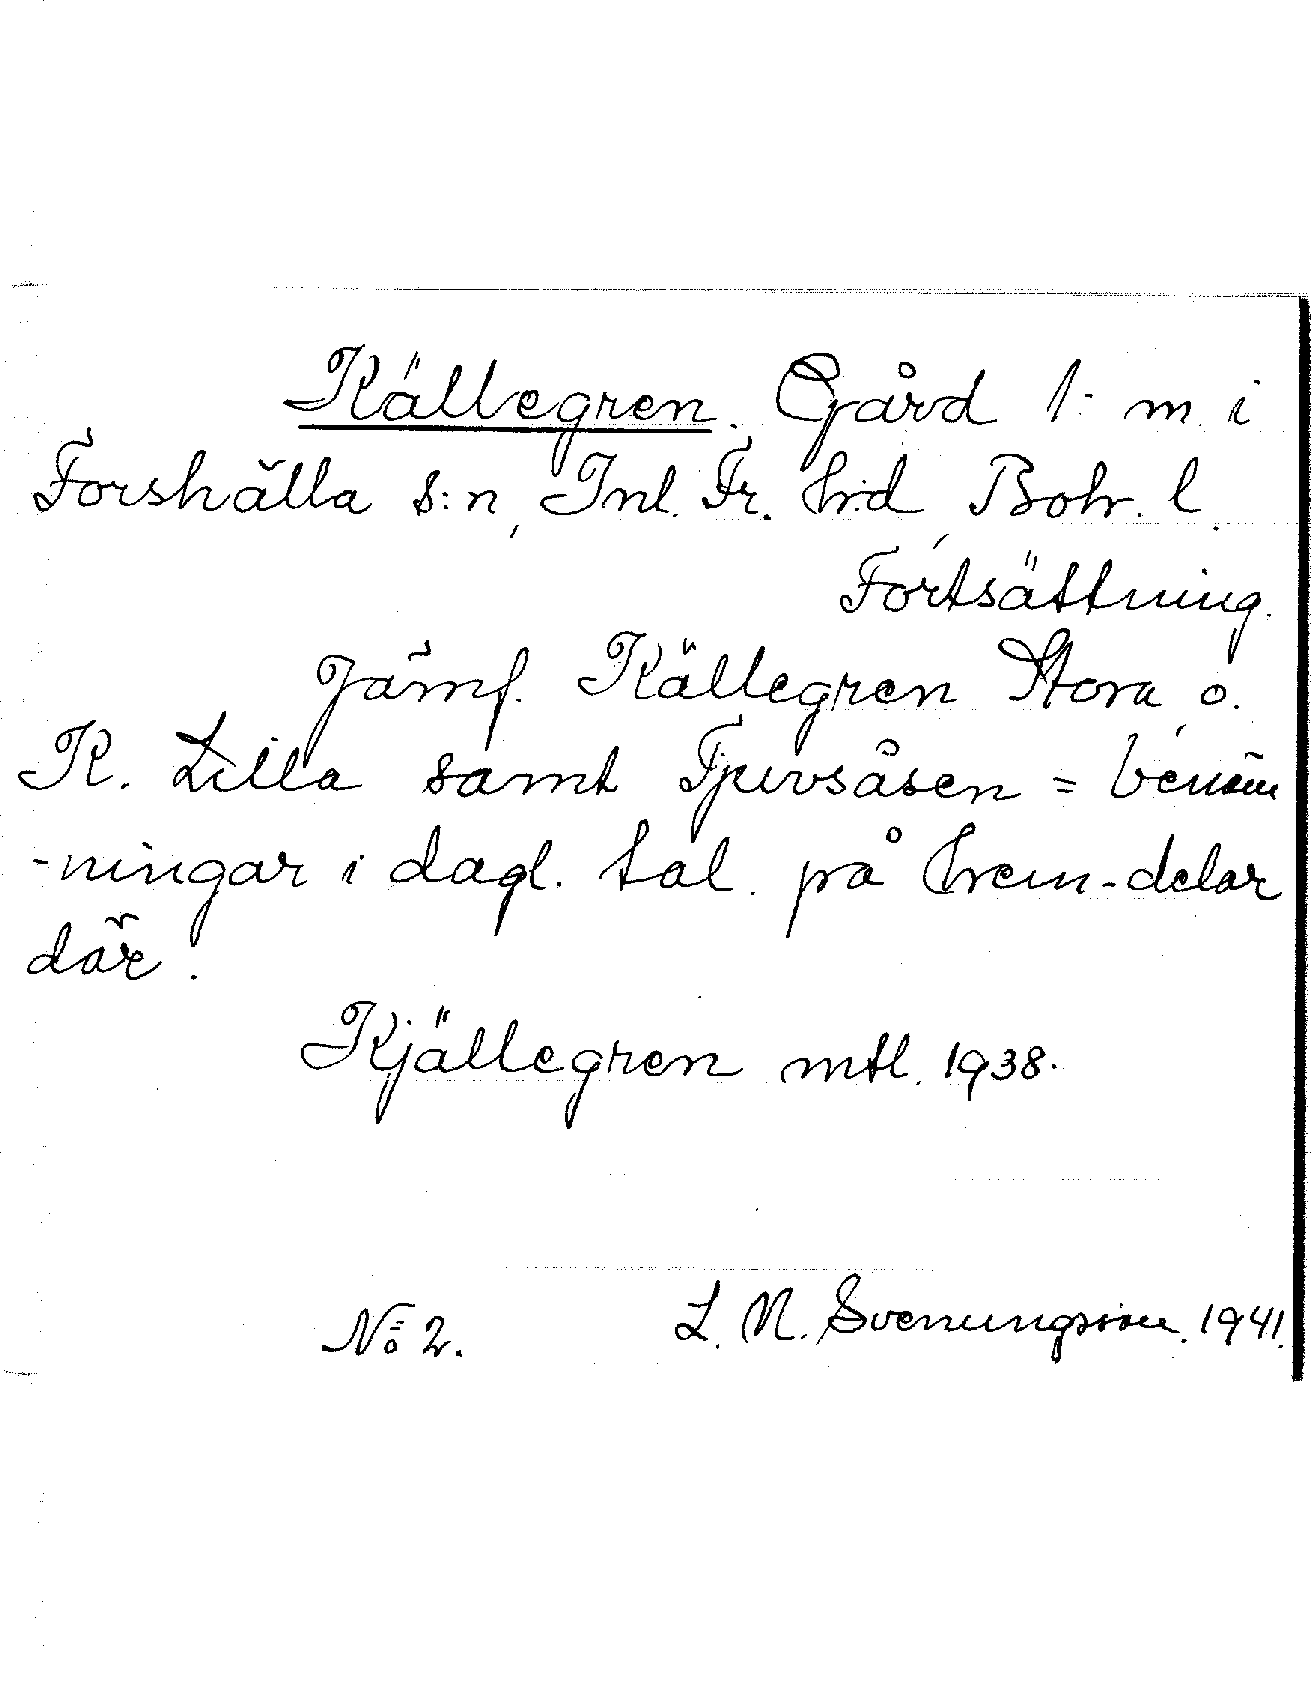 Källegren. Gård 1: m i
Forshälla s:n, Inl. Fr. hrd, Boh. l.
Fortsättning.
Jämf. Källegren Stora, o.
K. Lilla samt Tjuvsåsen = benäm
-ningar i dagl. tal. på hem-delar
där.
Kjällegren mtl. 1938.
No 2. L. N. Svenungsson. 1941.